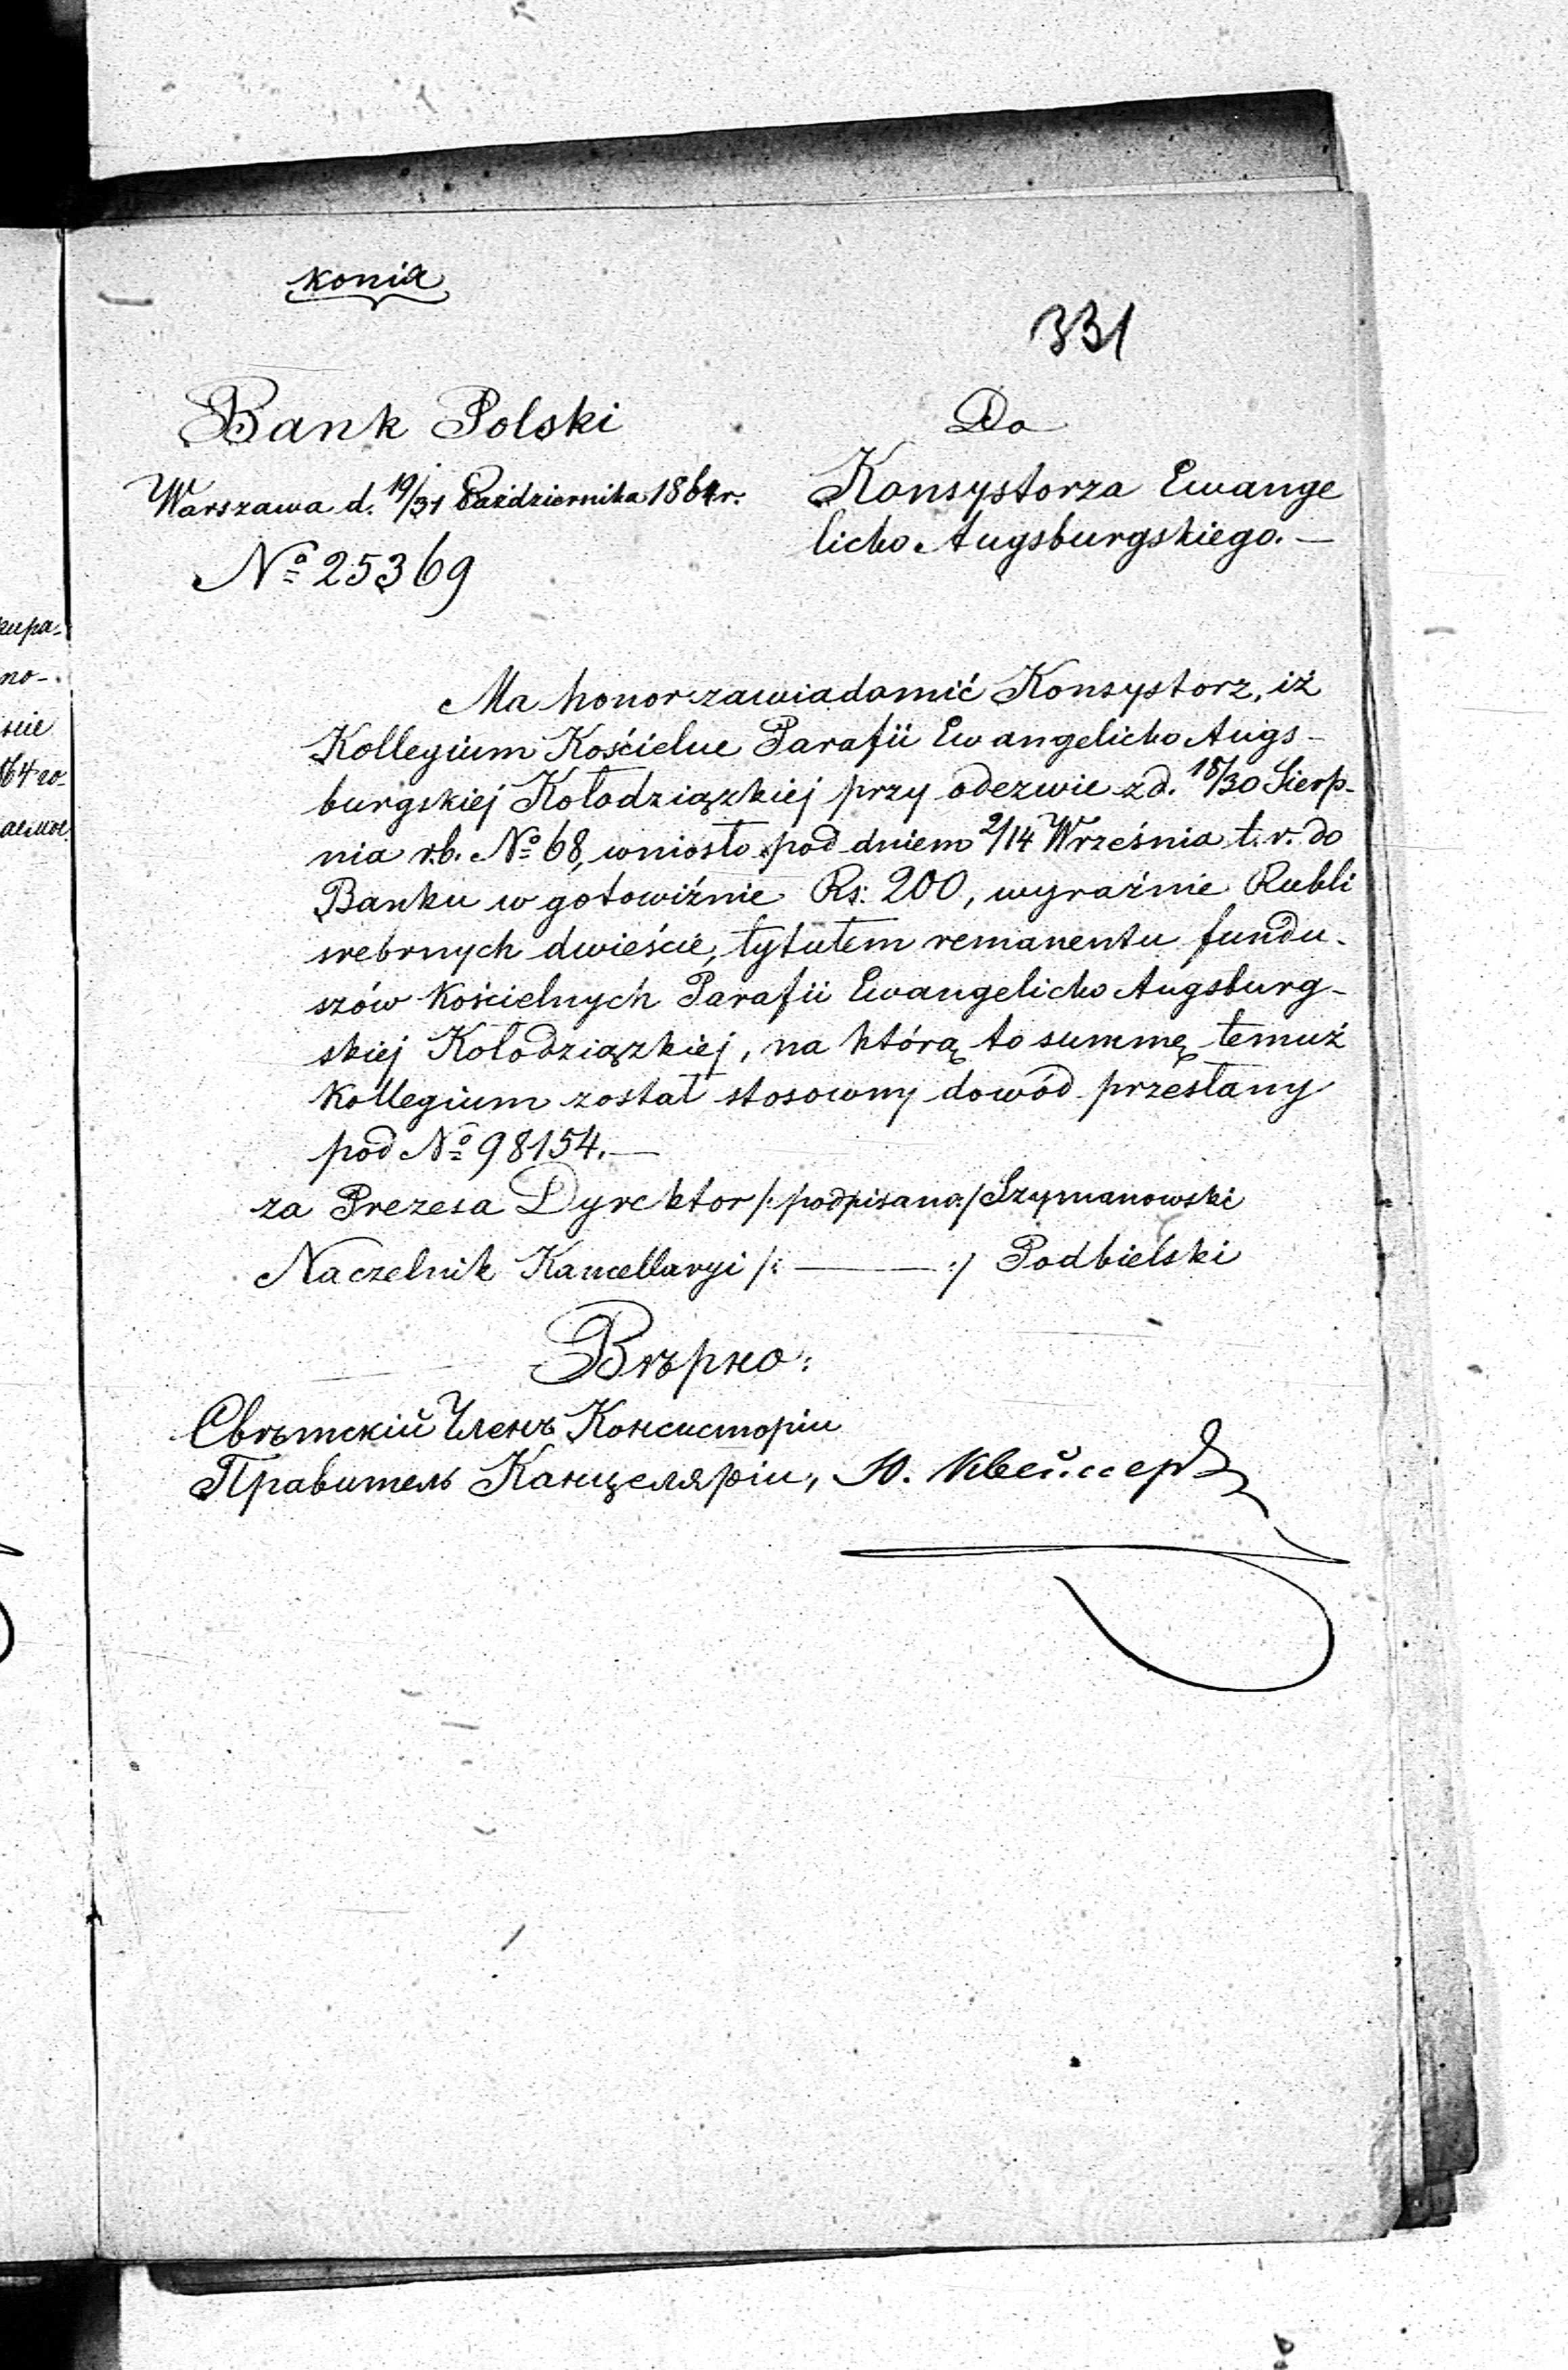 копія
331
Bank Polski
Warszawa d. 19/31 Października 1864 r.
№ 25369
Do
Konsystorza Ewange
licko Augsburgskiego. —
Ma honor zawiadomić Konsystorz, iż
Kollegium Kościelne Parafii Ewangelicko Augs-
burgskiej Kołodziązkiej przy odezwie z d. 18/30 Sierp-
nia r.b. № 68, wniosło pod dniem 2/14 Września t. r. do
Banku w gotowiźnie Rs: 200, wyraźnie Rubli
srebrnych dwieście, tytułem remanentu fundu-
szów Kościelnych Parafii Ewangelicko Augsburg-
skiej Kołodziązkiej, na którą to summę temuż
Kollegium został stosowny dowód przesłany
pod № 98154. —
za Prezesa Dyrektor /: podpisano :/ Szymanowski
Naczelnik Kancellaryi /: ——— :/ Podbielski
Вѣрно:
Свѣтскій Членъ Консисторіи
Правитель Канцеляріи, Ю.